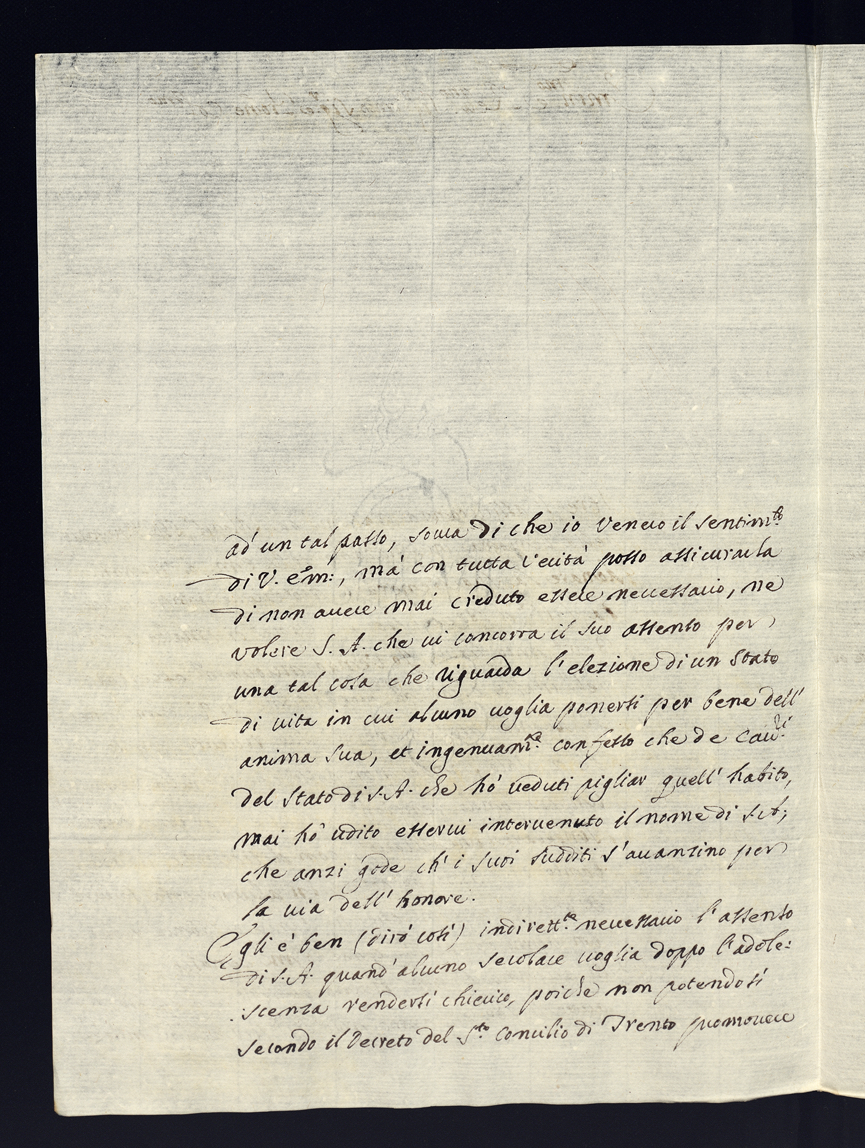 ad un tal passo, sovra di che io venero il sentim.to
di V. Em:, mà con tutta verità posso assicurarla
di non avere mai creduto essere necessario, ne
volere S. A. che vi concorra il suo assenso per
una tal cosa che riguarda l'elezione di un stato
di vita in cui alcuno voglia ponersi per bene dell'
anima sua, et ingenuam.te confesso che de Cav.ri
del stato di S. A. che hò veduti pigliar quell' habito,
mai hò udito esservi intervenuto il nome di S. A.,
che anzi gode ch' i suoi sudditi s'avanzino per
la via dell' honore.
Egli è ben (dirò così) indirett.te necessario l'assenso
di S. A. quand' alcuno secolare voglia doppo l'adole:
scenza rendersi chierico, poiche non potendosi
secondo il Decreto del S.to Concilio di Trento promovere